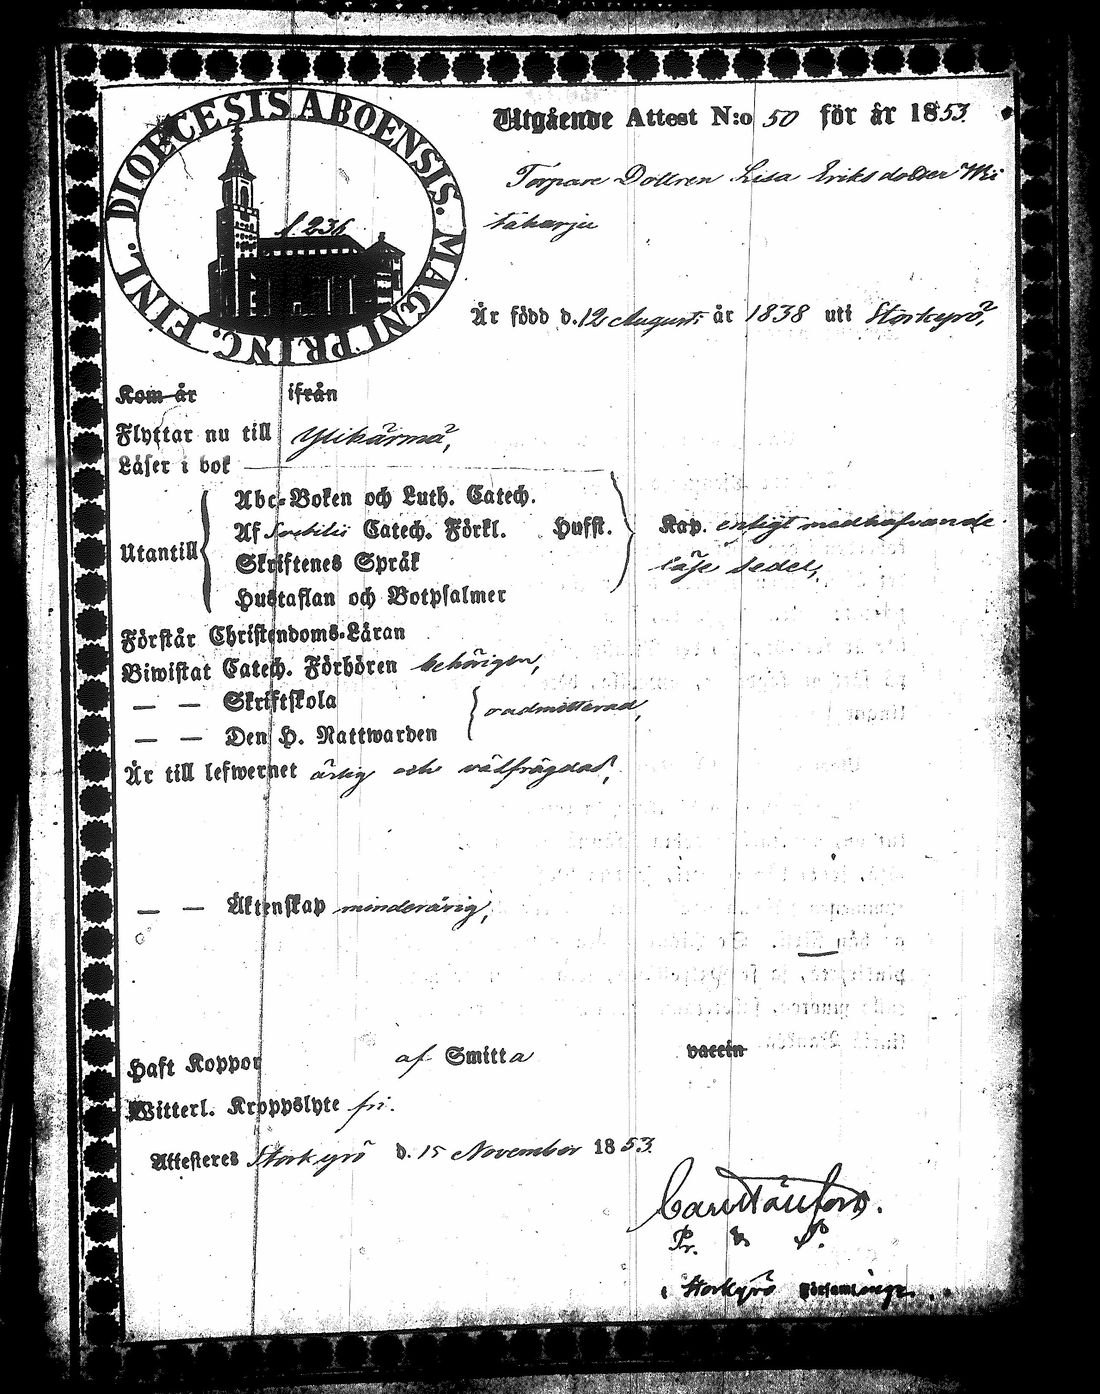 DIOECESIS ABOENSIS. MAGNI PRINC. FINL.
f. 236
Utgående Attest N:o 50 för år 1853.
Torpare Dottren Lisa Eriksdotter Wii
täharju
Är född d. 12 Augusti år 1838 uti Storkyrö,
Kom år ifrån
Flyttar nu till Ylihärmä,
Läser i bok
Utantill
Abc-Boken och Luth. Catech.
Af Svebilii Catech. Förkl. Hufft. Kap. enligt medhafvande
Skriftenes Språk läse sedel,
Hustaflan och Botpsalmer
Förstår Christendoms-Läran
Biwistat Catech. Förhören behörigen,
— — Skriftskola oadmitterad,
— — Den H. Nattwarden
Är till lefwernet ärlig och välfrägdad,
— — Äktenskap minderårig,
Haft Koppor af Smitta vaccin
Witterl. Kroppslyte fri.
Attesteres Storkyrö d. 15 November 1853.
Pr. &
i Storkyrö Församlinge.